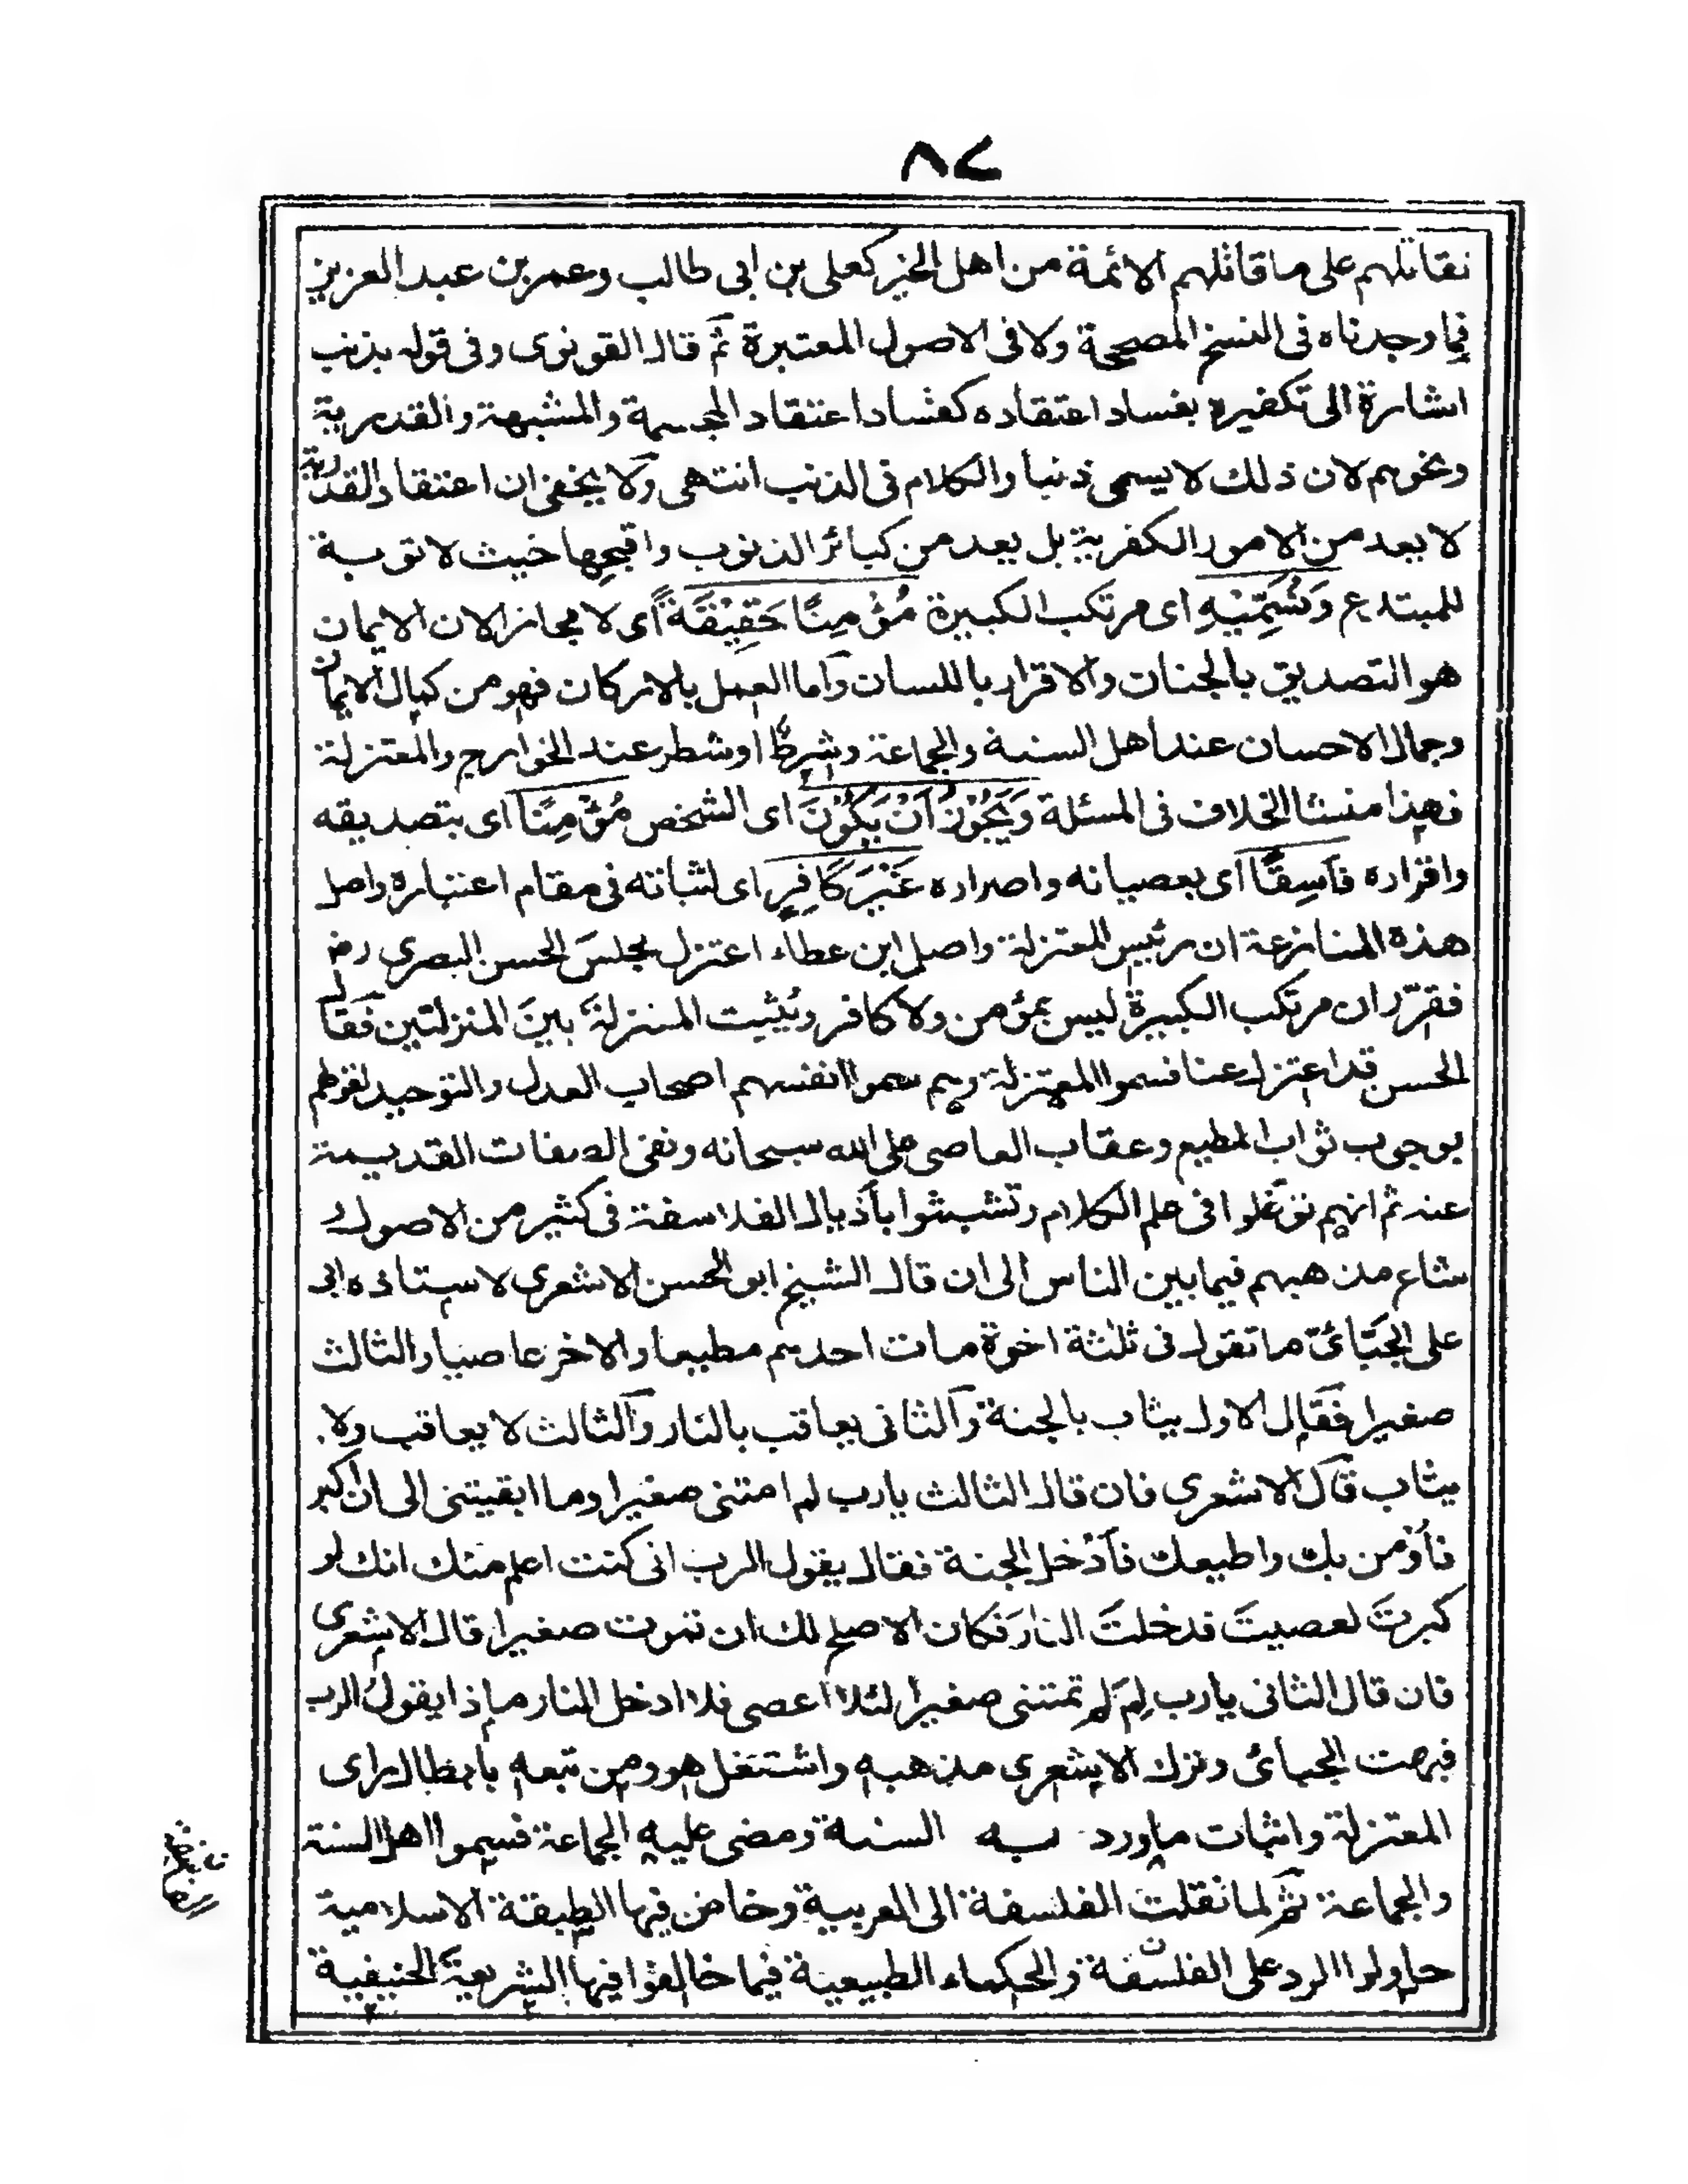 ٨٧
نقاتلهم على ما قاتلهم الائمة من اهل الخير كعلى بن ابى طالب وعمر بن عبد العزيز
فما وجدناه فى النسخ المصححة ولا فى الاصول المعتبرة ثم قال القونوى وفى قوله بذنب
اشارة الى تكفيره بفساد اعتقاده كفساد اعتقاد المجسمة والمشبهة والقدرية
ونحوهم لان ذلك لا يسمى ذنبا والكلام فى الذنب انتهى ولا يخفى ان اعتقاد القدرية
لا يعد من الامور الكفرية بل يعد من كبائر الذنوب واقبحها حيث لا توبة
للمبتدع وَنُسَمِّيْهِ اى مرتكب الكبيرة مُؤْمِنًا حَقِيْقَةً اى لا مجازا لان الايمان
هو التصديق بالجنان والاقرار باللسان واما العمل بالاركان فهو من كمال الايمان
وجمال الاحسان عند اهل السنة والجماعة وشرطٌ او شطر عند الخوارج والمعتزلة
فهذا منشأ الخلاف فى المسئلة وَيَجُوْزُ اَنْ يَكُوْنَ اى الشخص مُؤْمِنًا اى بتصديقه
واقراره فَاسِقًا اى بعصيانه واصراره غَيْرَ كَافِرٍ اى لثباته فى مقام اعتباره واصل
هذه المنازعة ان رئيس المعتزلة واصل ابن عطاء اعتزل مجلسَ الحسن البصرى رض
فقرّر ان مرتكب الكبيرة ليس بمؤمن ولا كافر ويُثبت المنزلةَ بينَ المنزلتين فَقَال
الحسن قد اعتزل عنا فسموا المعتزلة وهم سموا انفسهم اصحاب العدل والتوحيد لقولهم
بوجوب ثواب المطيع وعقاب العاصى على الله سبحانه ونفى الصفات القديمة
عنه ثم انهم توغلوا فى علم الكلام وتشبثوا باَذيال الفلاسفة فى كثير من الاصول و
شاع مذهبهم فيما بين الناس الى ان قال الشيخ ابو الحسن الاشعرى لاستاذه ابى
على الجُبّائىّ ما تقول فى ثلٰثة اخوة مات احدهم مطيعا والاخر عاصيا والثالث
صغيرا فقَال الاول يثاب بالجنة وَالثانى يعاقب بالنار وَالثالث لا يعاقب ولا
يثاب قَال الاشعرى فان قال الثالث يا رب لم امتنى صغيرا وما ابقيتنى الى ان اكبر
فأوْمن بك واطيعك فاَدْخل الجنة فقال يقول الرب انى كنت اعلم منك انك لو
كبرتَ لعصيتَ فدخلتَ النارَ فكان الاصلح لك ان تموت صغيرا قال الاشعرى
فان قال الثانى يا رب لِمَ لم تمتنى صغيرا لئلا اعصى فلا ادخل النار ماذا يقولُ الرب
فبهت الجبائى وترك الاشعرى مذهبه واشتغل هو ومن تبعه بابطال رأى
المعتزلة واثبات ما ورد به السنة ومضى عليه الجماعة فسموا اهل السنة
والجماعة ثم لما نقلت الفلسفة الى العربية وخاض فيها الطبقة الاسلامية
حاولوا الرد على الفلسفة والحكماء الطبيعية فيما خالفوا فيها الشريعةَ الحنيفية